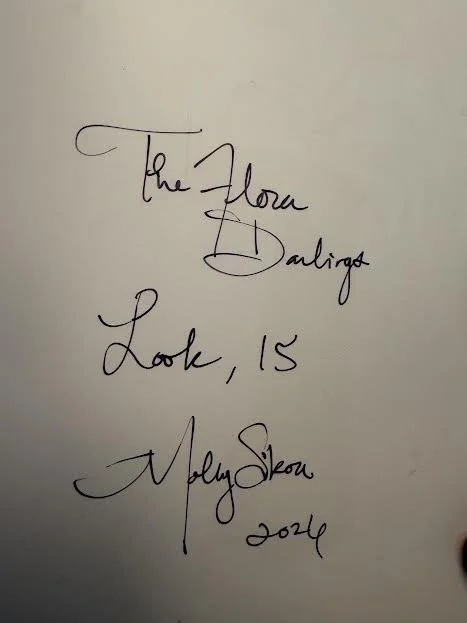 The Flora
Darlings
Look, 15
Molly Sikora
2024